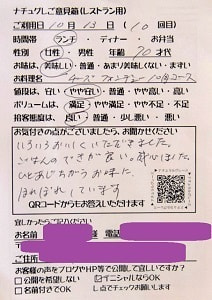 ナチュグレご意見箱(レストラン用)
ご利用日 10月 13日 (10 回目)
時間帯 ランチ・ディナー・お弁当
性別 女性・男性 年齢 70才代
お味は、美味しい・普通・あまり美味しくない・まずい
お料理名
値段は、安い・やや安い・普通・やや高い・高い
ボリュームは、満足・やや満足・普通・やや不足・不足
接客態度は、良い・普通・少し悪い・悪い
お気付きの点がございましたら、お聞かせください
いろいろおいしくいただきました。
ごはんのできが
ひとあじちがうお味に、
ほれぼれしています
QRコードからもお答えいただけます
宜しかったらご記入ください
お名前 様 電話
〒
ご住所
お客様の声をブログやHP等で公開して宜しいですか?
□公開を希望しない ☑イニシャルならOK
□名前付きでOK レ点でチェックお願いします